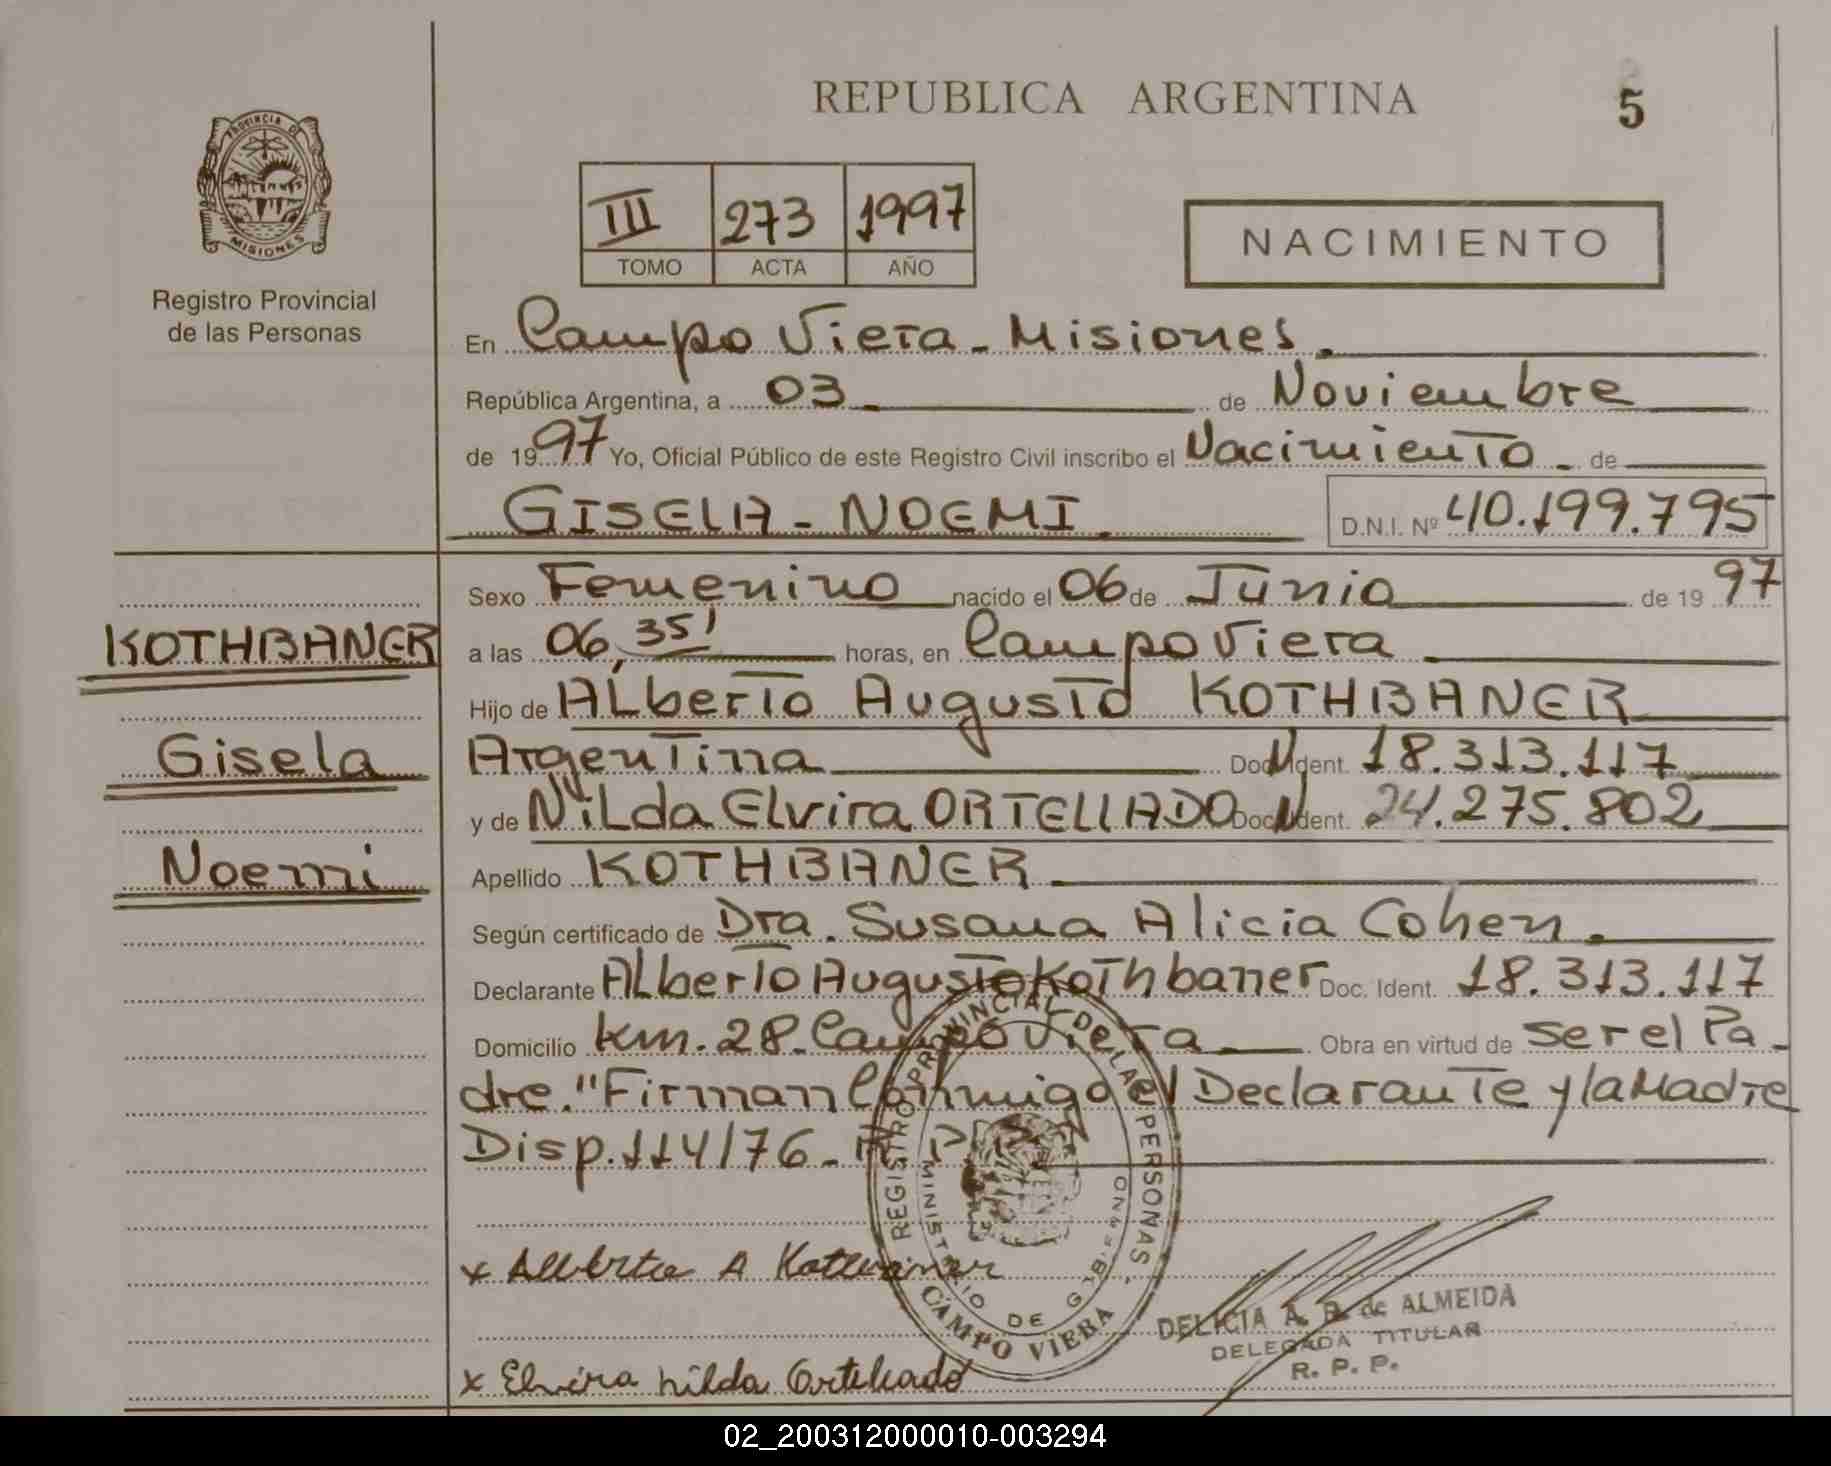 REPUBLICA ARGENTINA
5
PROVINCIA DE
MISIONES
Registro Provincial
de las Personas
III 273 1997
TOMO ACTA AÑO
NACIMIENTO
En Campo Viera - Misiones.
República Argentina, a 03 de Noviembre
de 1997 Yo, Oficial Público de este Registro Civil inscribo el Nacimiento - de
GISELA - NOEMI. D.N.I. Nº 40.199.795
KOTHBANER
Gisela
Noemi
Sexo Femenino nacido el 06 de Junio de 1997
a las 06,35' horas, en Campo Viera
Hijo de ALberto Augusto KOTHBANER
Argentina Doc. Ident. 18.313.117
y de NiLda Elvira ORTELLADO Doc. Ident. 24.275.802
Apellido KOTHBANER
Según certificado de Dra. Susana Alicia Cohen.
Declarante ALberto Augusto Kothbaner Doc. Ident. 18.313.117
Domicilio km. 28. Campo Viera Obra en virtud de ser el Pa-
dre." Firman Conmigo el Declarante y la Madre
Disp. 114/76 -
REGISTRO PROVINCIAL DE LAS PERSONAS
MINISTERIO DE GOBIERNO
CAMPO VIERA
x Alberto A Kothbaner
DELICIA A. B. de ALMEIDA
DELEGADA TITULAR
R. P. P.
x Elvira Nilda Ortellado
02_200312000010-003294